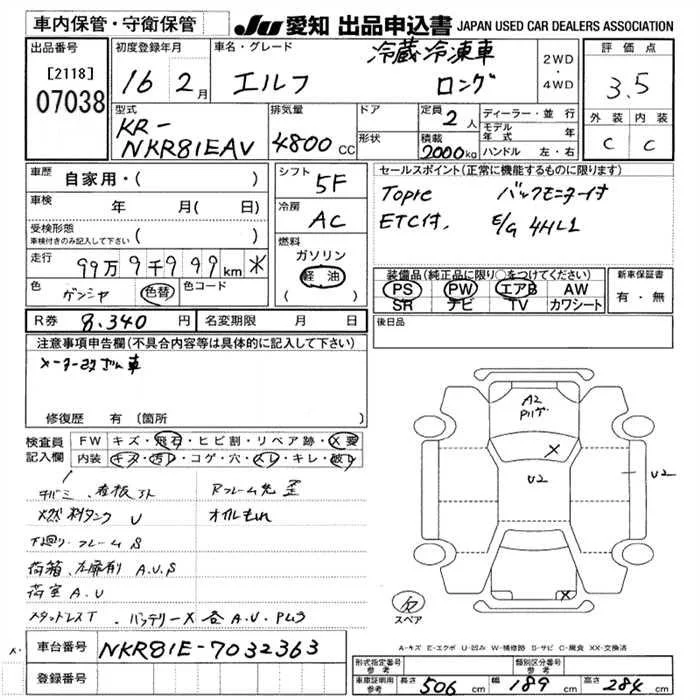 車内保管・守衛保管
JU 愛知 出品申込書 JAPAN USED CAR DEALERS ASSOCIATION
出品番号
[2118]
07038
初度登録年月
16 2月
車名・グレード
エルフ
冷蔵冷凍車
ロング
2WD
・
4WD
評価点
3.5
外装 内装
C C
型式
KR-
NKR81EAV
排気量
4800 CC
ドア
形状
定員
2人
積載
2000kg
ディーラー・並行
モデル年式 年
ハンドル 左・右
車歴 自家用・( )
車検 年 月(日)
受検形態
車検付きのみ記入して下さい ( )
走行 99万9千999km ※
色 ゲンシャ 色替 色コード
シフト 5F
冷房 AC
燃料
ガソリン
軽油
( )
セールスポイント(正常に機能するものに限ります)
Topre バックモニター付
ETC付. E/G 4HL1
装備品(純正品に限り○をつけてください)
PS PW エアB AW
SR ナビ TV カワシート
新車保証書
有・無
R券 8.340 円 名変期限 月 日
後日品
注意事項申告欄(不具合内容等は具体的に記入して下さい)
メーター改ざん車
修復歴 有 〔箇所
検査員
記入欄
FW キズ・飛石・ヒビ割・リペア跡・X要
内装 キズ・汚レ・コゲ・穴・スレ・キレ・破レ
看板 Rフレーム先 歪
燃料タンク U オイルもれ
下廻り・フレーム S
荷箱、左扉有 A.U.S
荷室 A.U
バッテリーX 各A.U
A2
X
U2
U2
X
スペア
A-キズ E-エクボ U-凹み W-補修跡 S-サビ C-腐食 XX-交換済
車台番号 NKR81E-7032363
登録番号
形式指定番号
参考
類別区分番号
参考
車庫証明用
参考
長さ 506 cm 幅 189 cm 高さ 284 cm